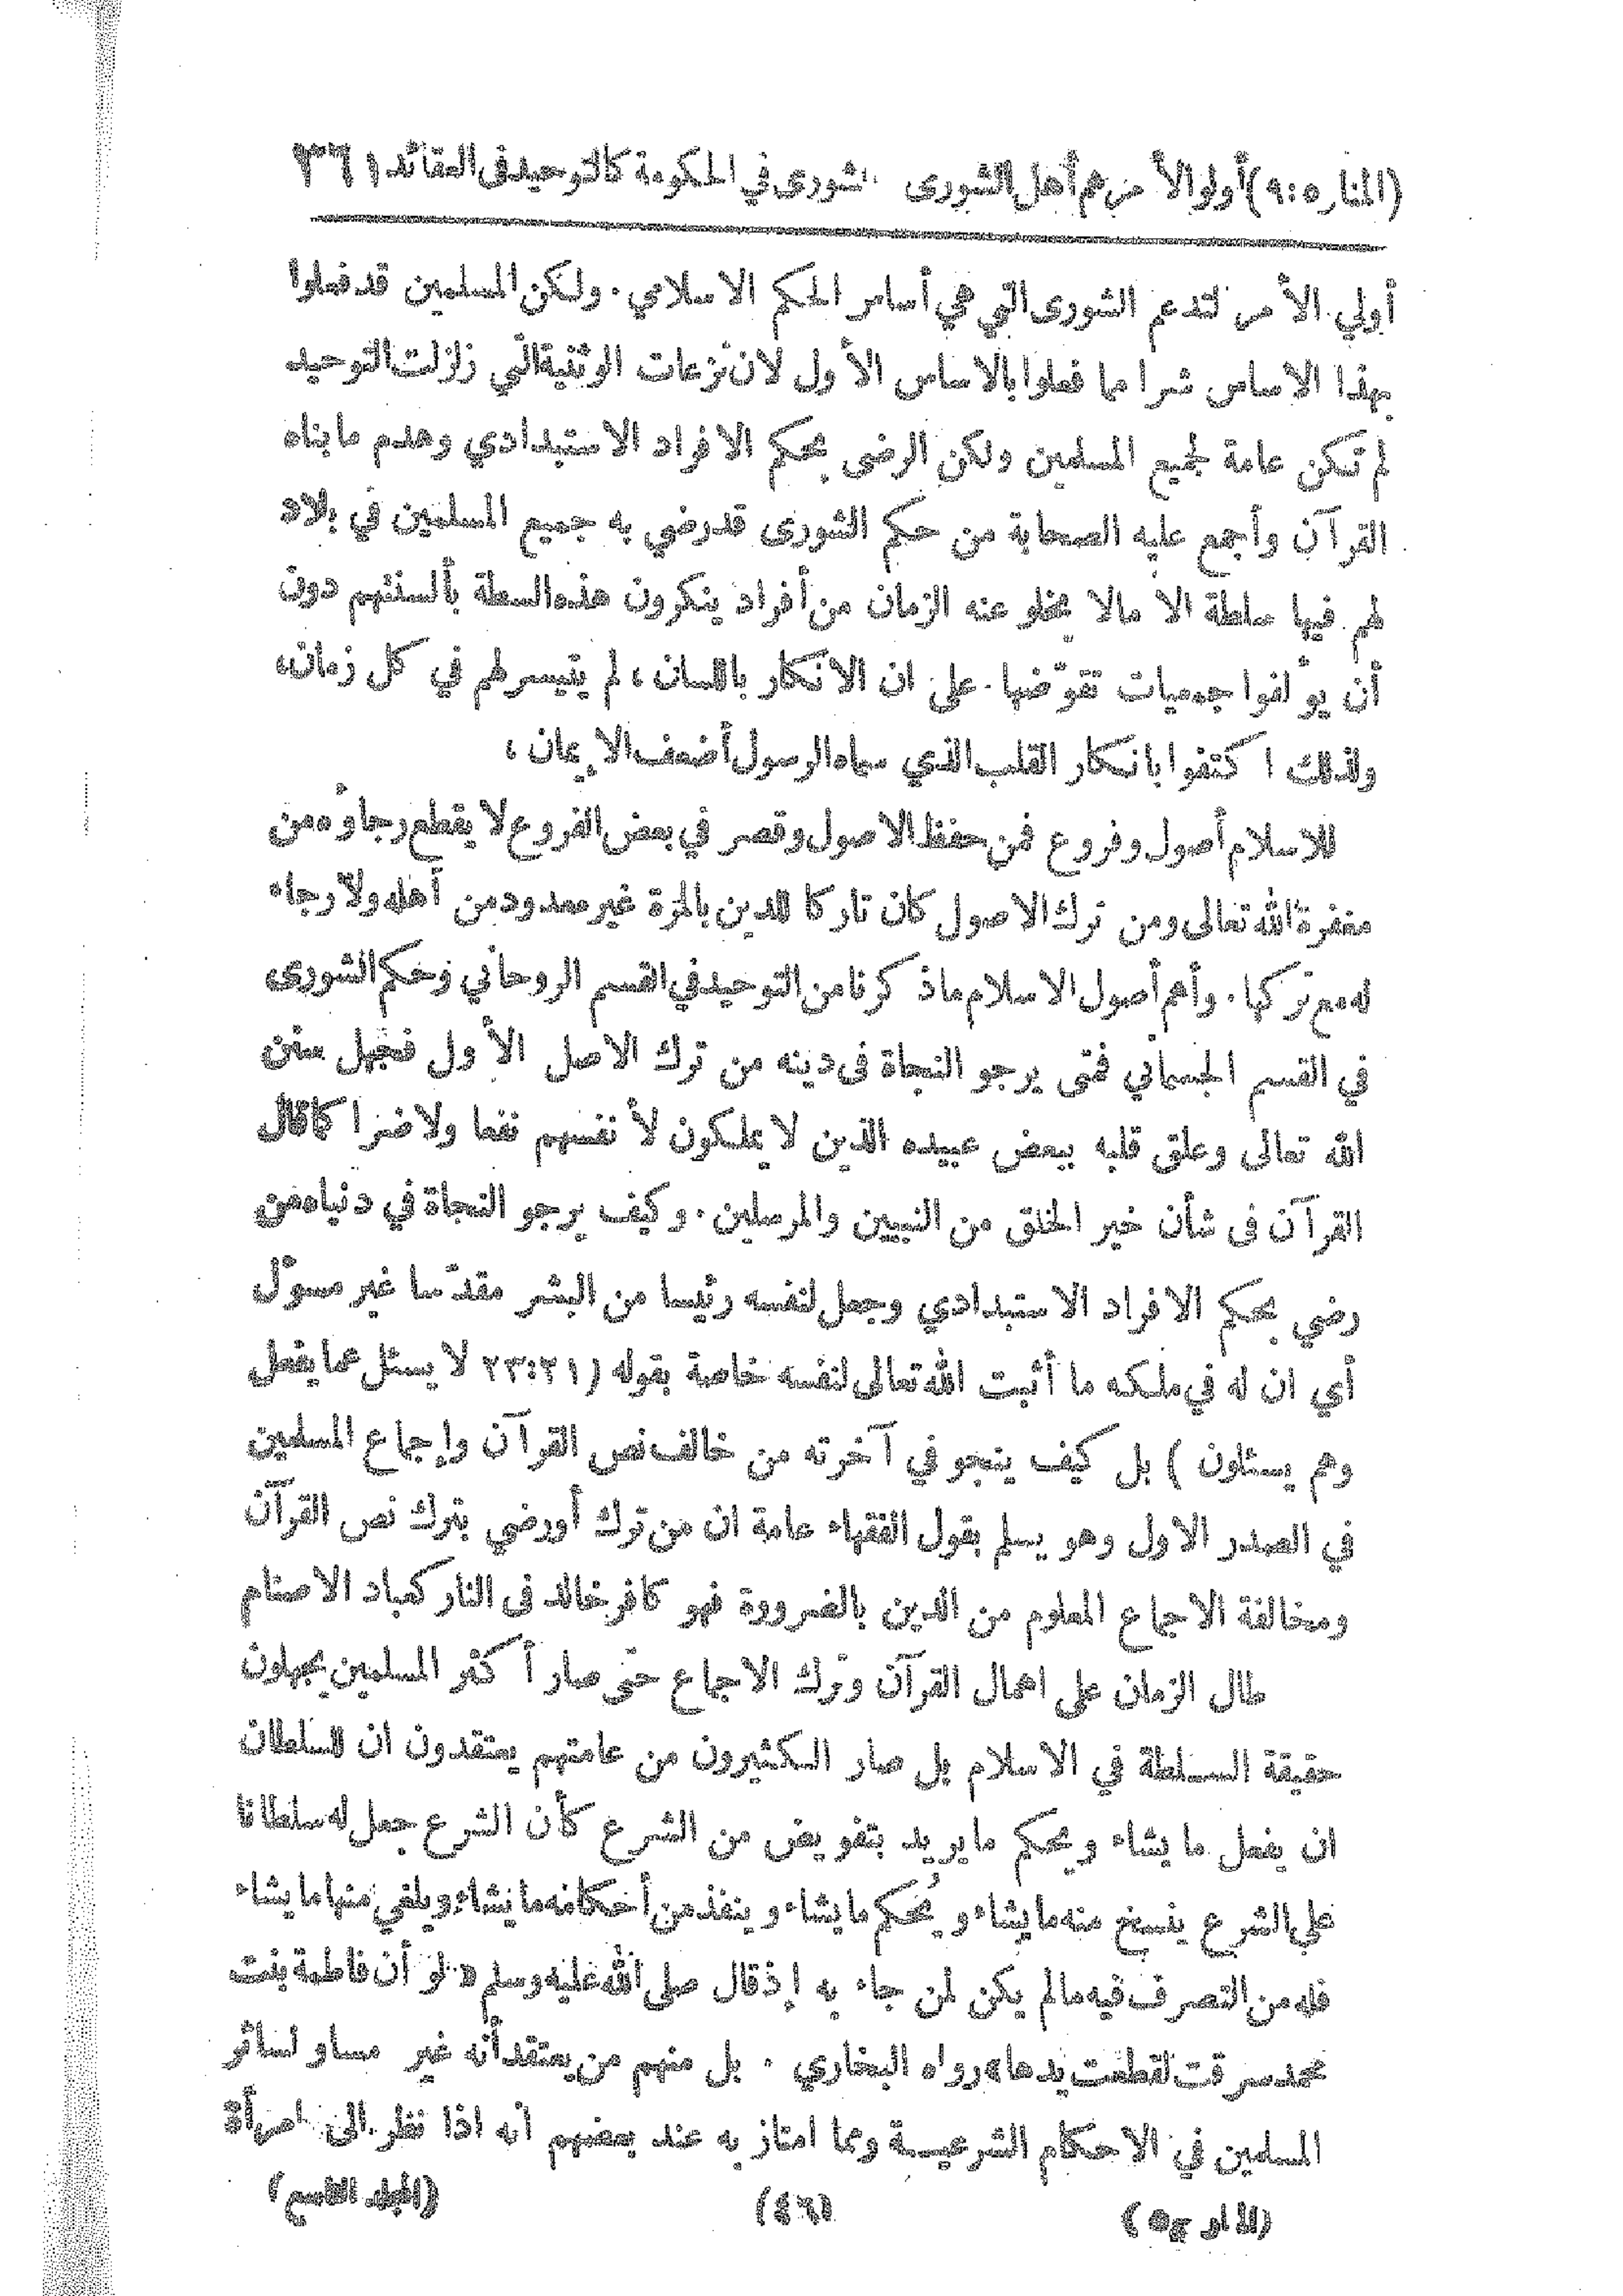 (المنار ٥:٩) أولو الأمر هم أهل الشورى الشورى في الحكومة كالتوحيد في العقائد ٣٦١
أولي الأمر لتدعم الشورى التي هي أساس الحكم الاسلامي . ولكن المسلمين قد فعلوا
بهذا الاساس شرا مما فعلوا بالاساس الأول لان نزعات الوثنية التي زلزلت التوحيد
لم تكن عامة لجميع المسلمين ولكن الرضى بحكم الافراد الاستبدادي وهدم ما بناه
القرآن وأجمع عليه الصحابة من حكم الشورى قد رضي به جميع المسلمين في بلاد
لهم فيها سلطة الا مالا يخلو عنه الزمان من أفراد ينكرون هذه السطة بألسنتهم دون
أن يؤلفوا جمعيات تقوّضها . على ان الانكار باللسان ، لم يتيسر لهم في كل زمان ،
ولذلك اكتفوا بانكار القلب الذي سماه الرسول أضعف الايمان ،
للاسلام أصول وفروع فمن حفظ الاصول وقصر في بعض الفروع لا يقطع رجاؤه من
مغفرة الله تعالى ومن ترك الاصول كان تاركا للدين بالمرة غير معدود من أهله ولا رجاء
له مع تركها . وأهم أصول الاسلام ماذكرنا من التوحيد في القسم الروحاني وحكم الشورى
في القسم الجسماني فمتى يرجو النجاة فى دينه من ترك الاصل الأول فجهل سنن
الله تعالى وعلق قلبه ببعض عبيده الذين لا يملكون لأنفسهم نفعا ولا ضرا كما قال
القرآن فى شأن خير الخلق من النبيين والمرسلين . وكيف يرجو النجاة في دنياه من
رضي بحكم الافراد الاستبدادي وجعل لنفسه رئيسا من البشر مقدّسا غير مسؤل
أي ان له في ملكه ما أثبت الله تعالى لنفسه خاصة بقوله (٢٣:٢١ لا يسئل عما يفعل
وهم يسئلون ) بل كيف ينجو في آخرته من خالف نص القرآن وإجماع المسلمين
في الصدر الاول وهو يسلم بقول الفقهاء عامة ان من ترك أو رضي بترك نص القرآن
ومخالفة الاجماع المعلوم من الدين بالضرورة فهو كافر خالد فى النار كعباد الاصنام
طال الزمان على اهمال القرآن وترك الاجماع حتى صار أكثر المسلمين يجهلون
حقيقة السلطة في الاسلام بل صار الكثيرون من عامتهم يعتقدون ان للسلطان
ان يفعل ما يشاء ويحكم ما يريد بتفويض من الشرع كأن الشرع جعل له سلطانا
على الشرع ينسخ منه ما يشاء ويُحكم ما يشاء وينفذ من أحكامه ما يشاء ويلغي منها ما يشاء
فله من التصرف فيه مالم يكن لمن جاء به إذ قال صلى الله عليه وسلم « لو أن فاطمة بنت
محمد سرقت لقطعت يدها » رواه البخاري . بل منهم من يعتقد أنه غير مساو لسائر
المسلمين في الاحكام الشرعيـة ومما امتاز به عند بعضهم أنه اذا نظر الى امرأة
(المنار ج ٥) (٤٦) (المجلد التاسع)